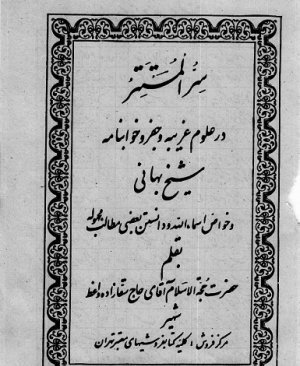 سرّ المستتر
در علوم غریبه و جفر و خوابنامه
شیخ بهائی
و خواص اسماء الله و دانستن بعضی مطالب مجهوله
بقلم
حضرت حجة الاسلام آقای حاج سقازاده واعظ
شهیر
مرکز فروش: کلیه کتابفروشیهای معتبر تهران